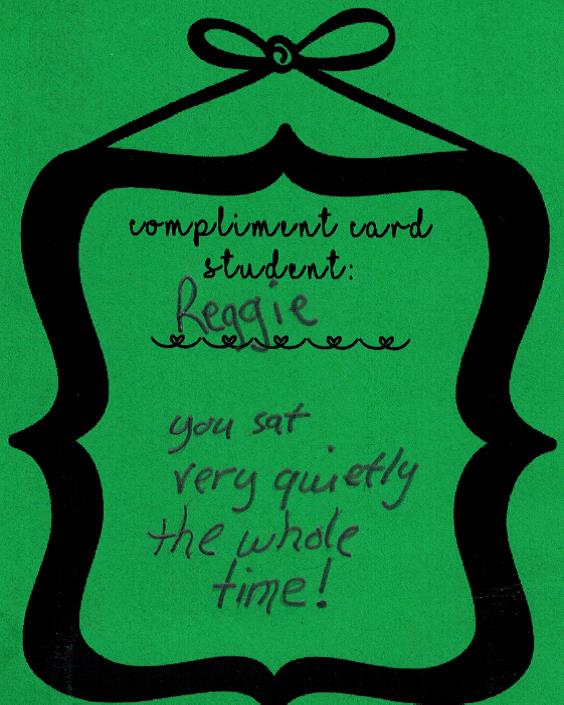 compliment card
student:
Reggie
you sat
very quietly
the whole
time!